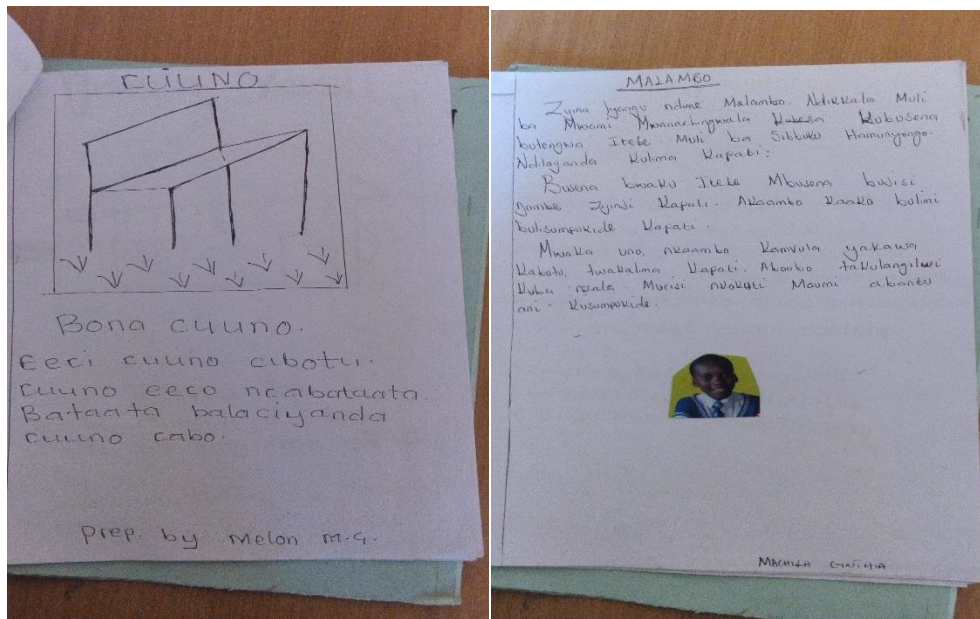 CUUNO
Bona cuuno.
Eeci cuuno cibotu.
Cuuno eeco ncabataata.
Bataata balaciyanda
cuuno cabo.
Prep. by Melon m.g.
MALAMBO
Zyina lyangu ndime Malambo. Ndikkala Muli
ba Mwami Mwanachingwala Kubusena
bulengwa Itebe Muli ba Sibbuku Hamunyongo.
Ndilayanda Kulima Kapati.
Busena bwaku Itebe Mbusena bwisi
ŋombe Zyinji Kapati. Akaambo kaako bulimi
bulisumpukide Kapati.
Mwaka uno, nkaambo Kamvula yakawa
Kabotu, twakalima Kapati. Aboobo takulangilwi
Kuba nzala Mucisi nkokuti Maumi abantu
ani Kusumpukide.
MACHILA